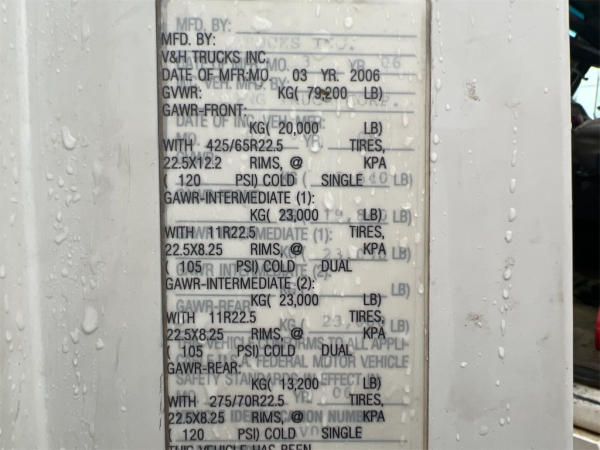 MFD. BY:
MFD. BY:
V&H TRUCKS INC
DATE OF MFR:MO. 03 YR. 2006
GVWR: KG( 79,200 LB)
GAWR-FRONT:
DATE OF INC. VEH. MFR:
KG( 20,000 LB)
WITH 425/65R22.5 TIRES,
22.5X12.2 RIMS, @ KPA
( 120 PSI) COLD SINGLE
GAWR-INTERMEDIATE (1):
KG( 23,000 LB)
WITH 11R22.5 TIRES,
22.5X8.25 RIMS, @ KPA
( 105 PSI) COLD DUAL
GAWR INTERMEDIATE (2):
GAWR-INTERMEDIATE (2):
KG( 23,000 LB)
GAWR-REAR
WITH 11R22.5 TIRES,
22.5X8.25 RIMS, @ KPA
( 105 PSI) COLD DUAL
GAWR-REAR:
SAFETY STANDARDS IN EFFECT IN
KG( 13,200 LB)
WITH 275/70R22.5 TIRES,
22.5X8.25 RIMS, @ KPA
( 120 PSI) COLD SINGLE
THIS VEHICLE HAS BEEN